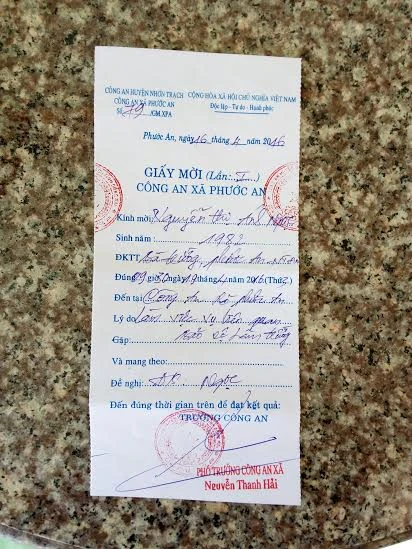 CÔNG AN HUYỆN NHƠN TRẠCH CỘNG HÒA XÃ HỘI CHỦ NGHĨA VIỆT NAM
CÔNG AN XÃ PHƯỚC AN Độc lập - Tự do - Hạnh phúc
Số 79 /GM.XPA
Phước An, ngày 16 tháng 4 năm 2016
GIẤY MỜI (Lần: I)
CÔNG AN XÃ PHƯỚC AN
Kính mời: Nguyễn Thị Ngọc
Sinh năm : 1982
ĐKTT phước An
Đúng 09 giờ 30 ngày 19 tháng 4 /2016 (Thứ 3)
Đến tại Công An xã phước An
Lý do Làm việc vụ liên quan
Gặp:
Và mang theo:
Đề nghị: Ngọc
Đến đúng thời gian trên để đạt kết quả:
TRƯỞNG CÔNG AN
PHÓ TRƯỞNG CÔNG AN XÃ
Nguyễn Thanh Hải